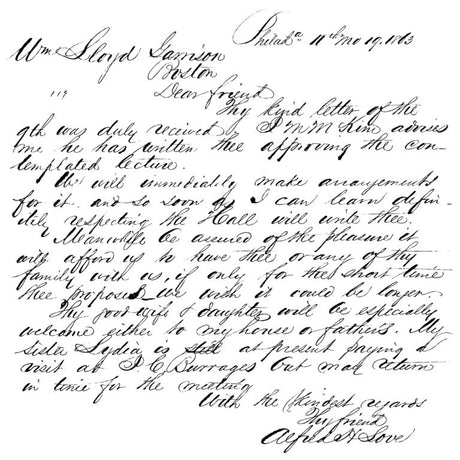 Philada 11th Mo 19. 1863
Wm Lloyd Garrison
Boston
Dear friend
Thy kind letter of the
9th was duly received, J M McKim advises
me he has written thee approving the con-
templated lecture.
We will immediately make arrangements
for it. and so soon as I can learn defin-
itely respecting the Hall will write thee.
Meanwhile be assured of the pleasure it
will afford us to have thee or any of thy
family with us, if only for the short time
thee proposes we wish it could be longer.
Thy good wife & daughter will be especially
welcome either to my house or father's. My
sister Lydia is still at present paying a
visit at J C Burrages but may return
in time for the meeting
With the kindest regards
Thy friend
Alfred H Love